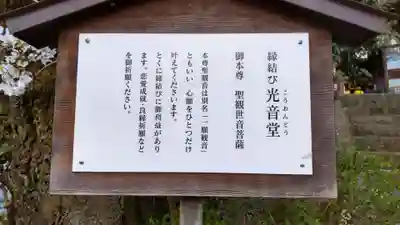 縁結び 光音堂
こうおんどう
御本尊 聖観世音菩薩
本尊聖観音は別名「一願観音」
ともいい 心願をひとつだけ
叶えてくださいます。
とくに縁結びに御利益があり
ます。恋愛成就・良縁祈願など
を御祈願ください。